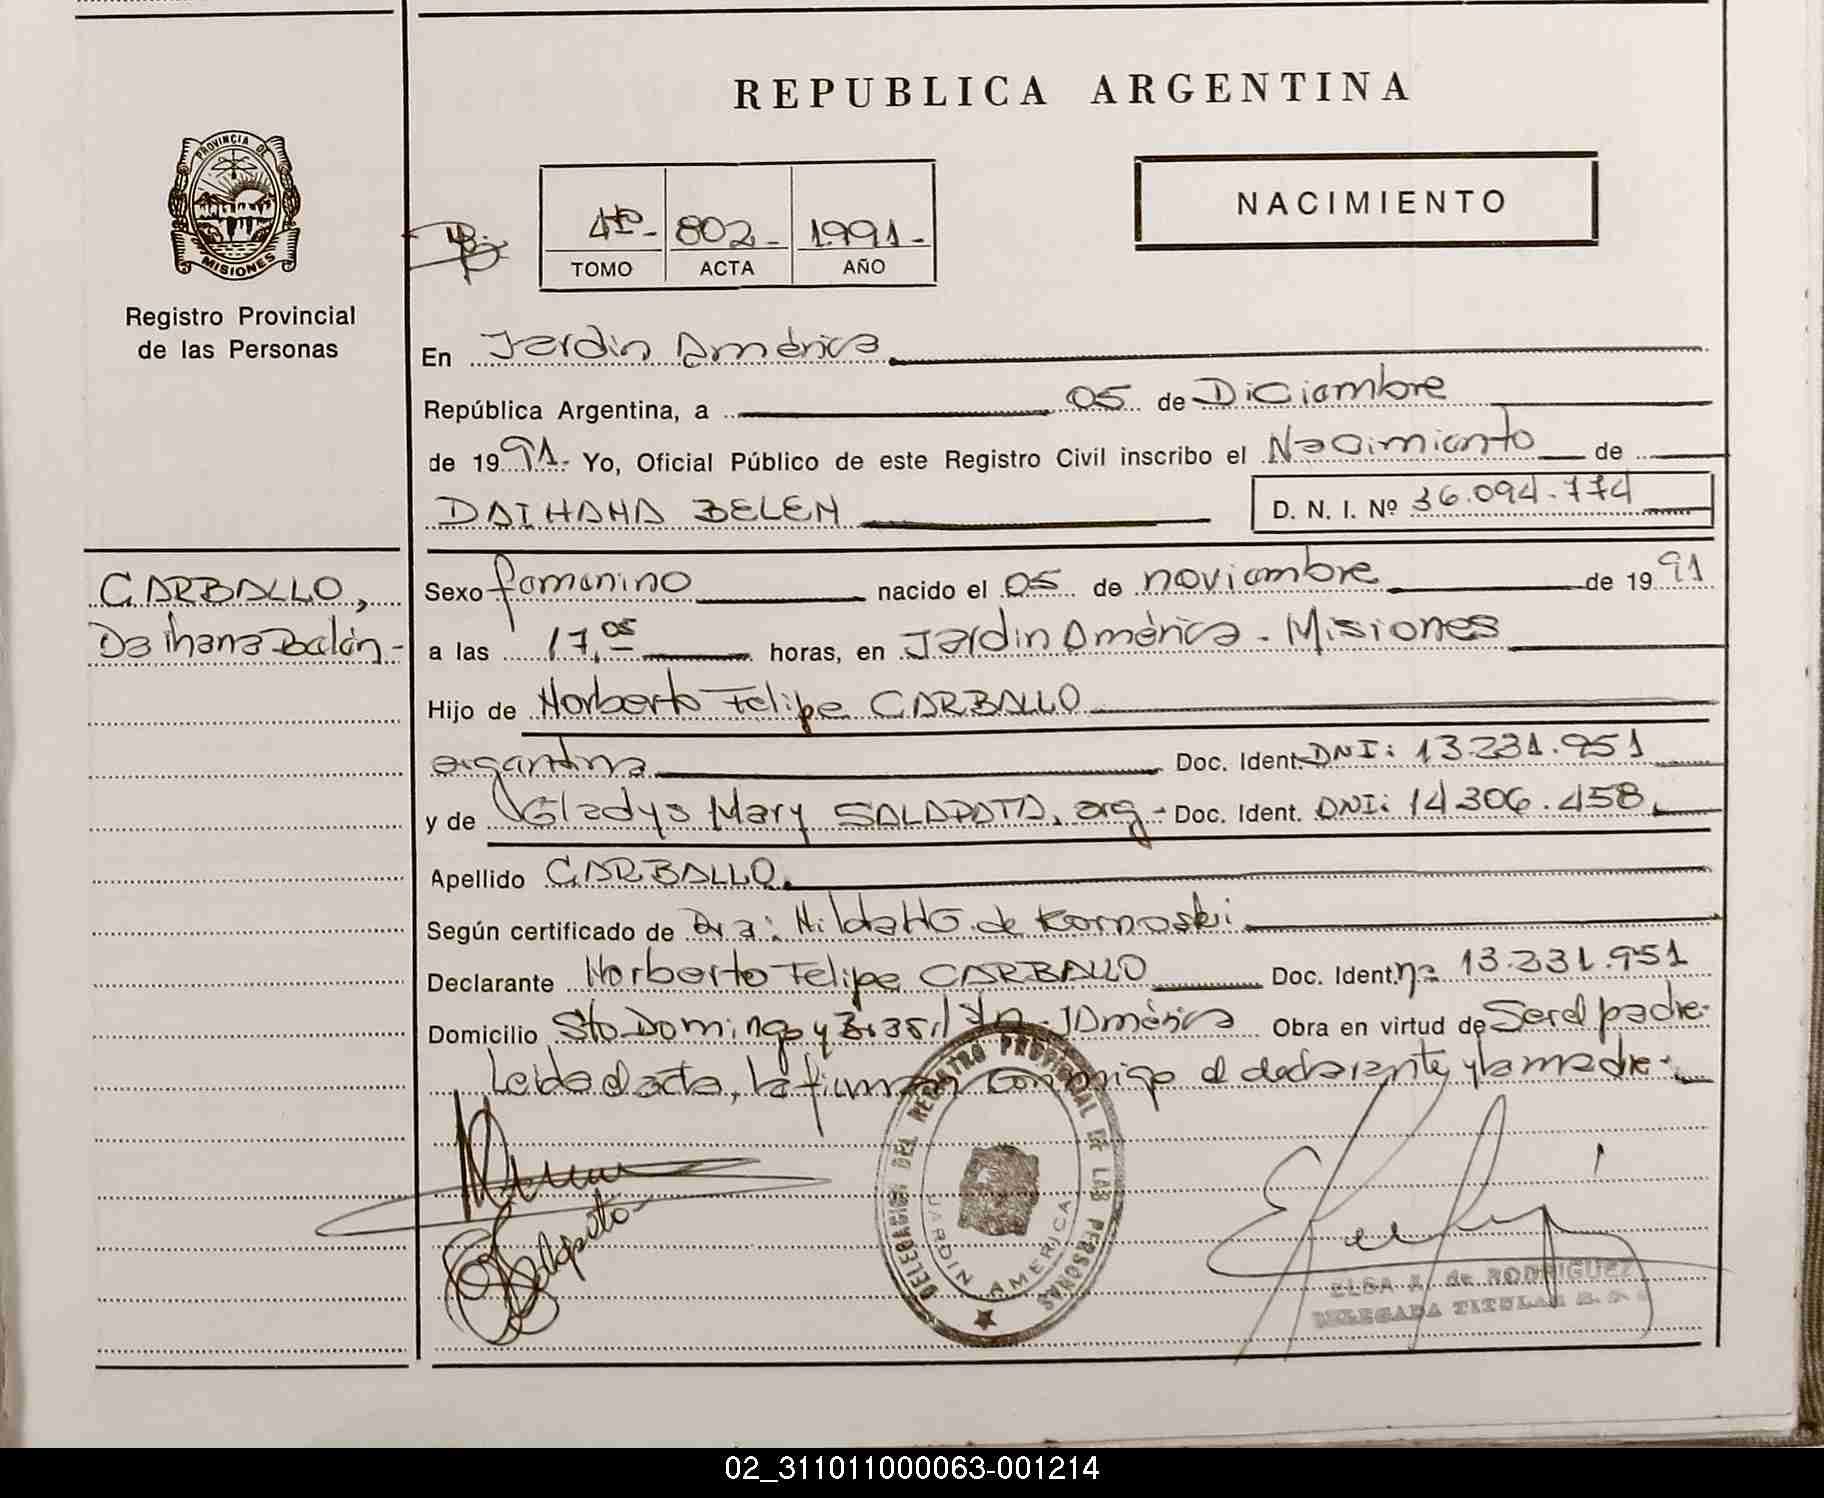 REPUBLICA ARGENTINA
PROVINCIA DE
MISIONES
Registro Provincial
de las Personas
NACIMIENTO
4º- 802- 1991-
TOMO ACTA AÑO
En Jardín América
República Argentina, a 05 de Diciembre
de 1991.- Yo, Oficial Público de este Registro Civil inscribo el Nacimiento de
DAIHANA BELEN
D. N. I. Nº 36.094.774
CARBALLO,
Daihana Belén-
Sexo femenino nacido el 05 de noviembre de 1991
a las 17,05 horas, en Jardín América - Misiones
Hijo de Norberto Felipe CARBALLO
argentina Doc. Ident. DNI: 13.231.951
y de Gladys Mary SALAPATA, arg- Doc. Ident. DNI: 14.306.458.
Apellido CARBALLO.
Según certificado de Dra: Hilda HG. de Kornoski
Declarante Norberto Felipe CARBALLO Doc. Ident. nº 13.231.951
Domicilio Sto Domingo y Brasil s/n - J América Obra en virtud de Ser el padre-
Leída el acta, la firman conmigo el declarante y la madre-
DELEGACION DEL REGISTRO PROVINCIAL DE LAS PERSONAS
JARDIN AMERICA
ELSA A. de RODRIGUEZ
DELEGADA TITULAR
02_311011000063-001214